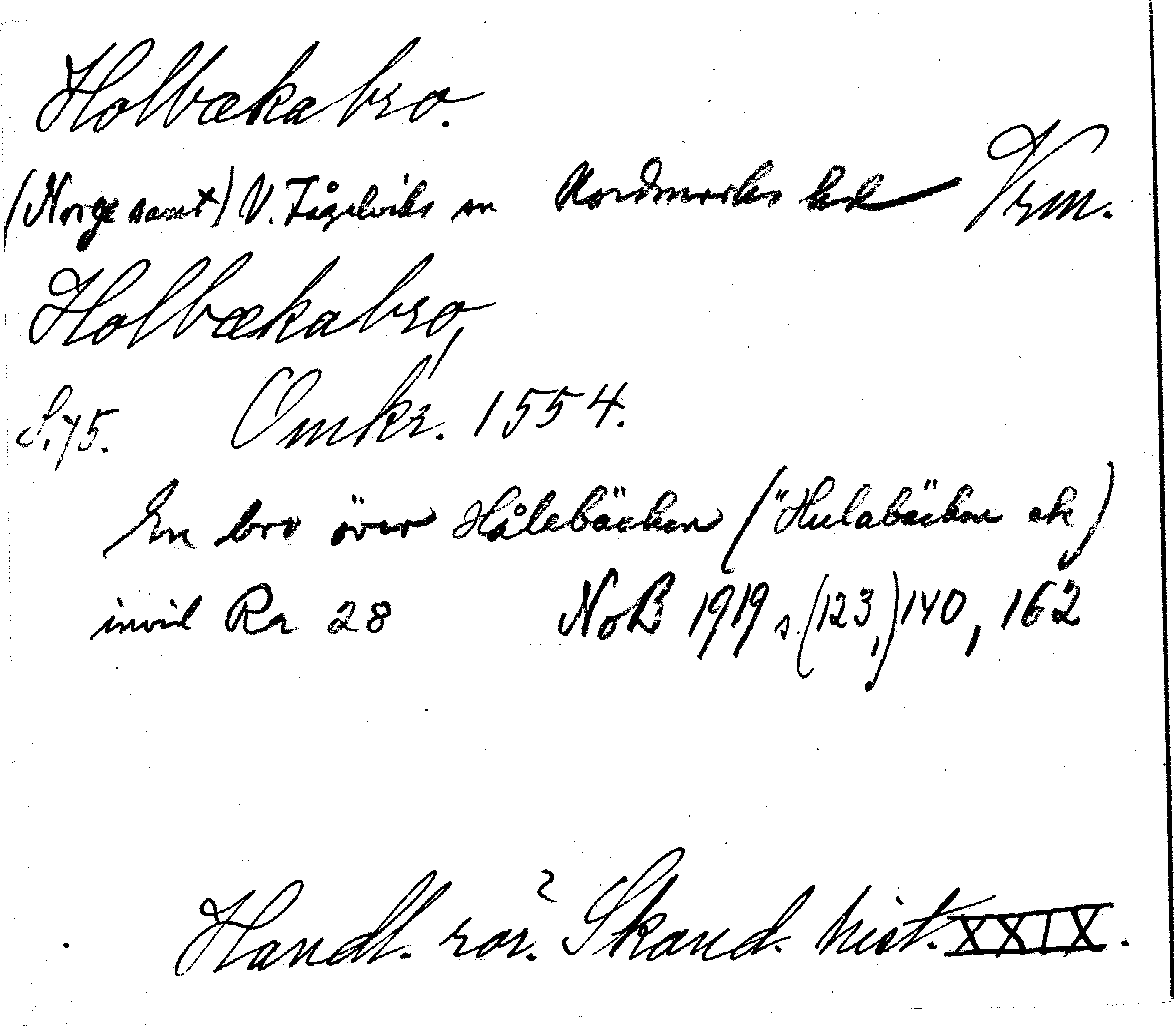 Holbækabro.
(Norge samt) V. Fågelviks sn Nordmarks hd Vrm.
Holbækabro,
S. 75. Omkr. 1554.
En bro över Hålebäcken ("Hulabäcken ek)
invid Rr 28 NoB 1919 s. (123,) 140, 162
Handl. rör. Skand. hist. XXIX.